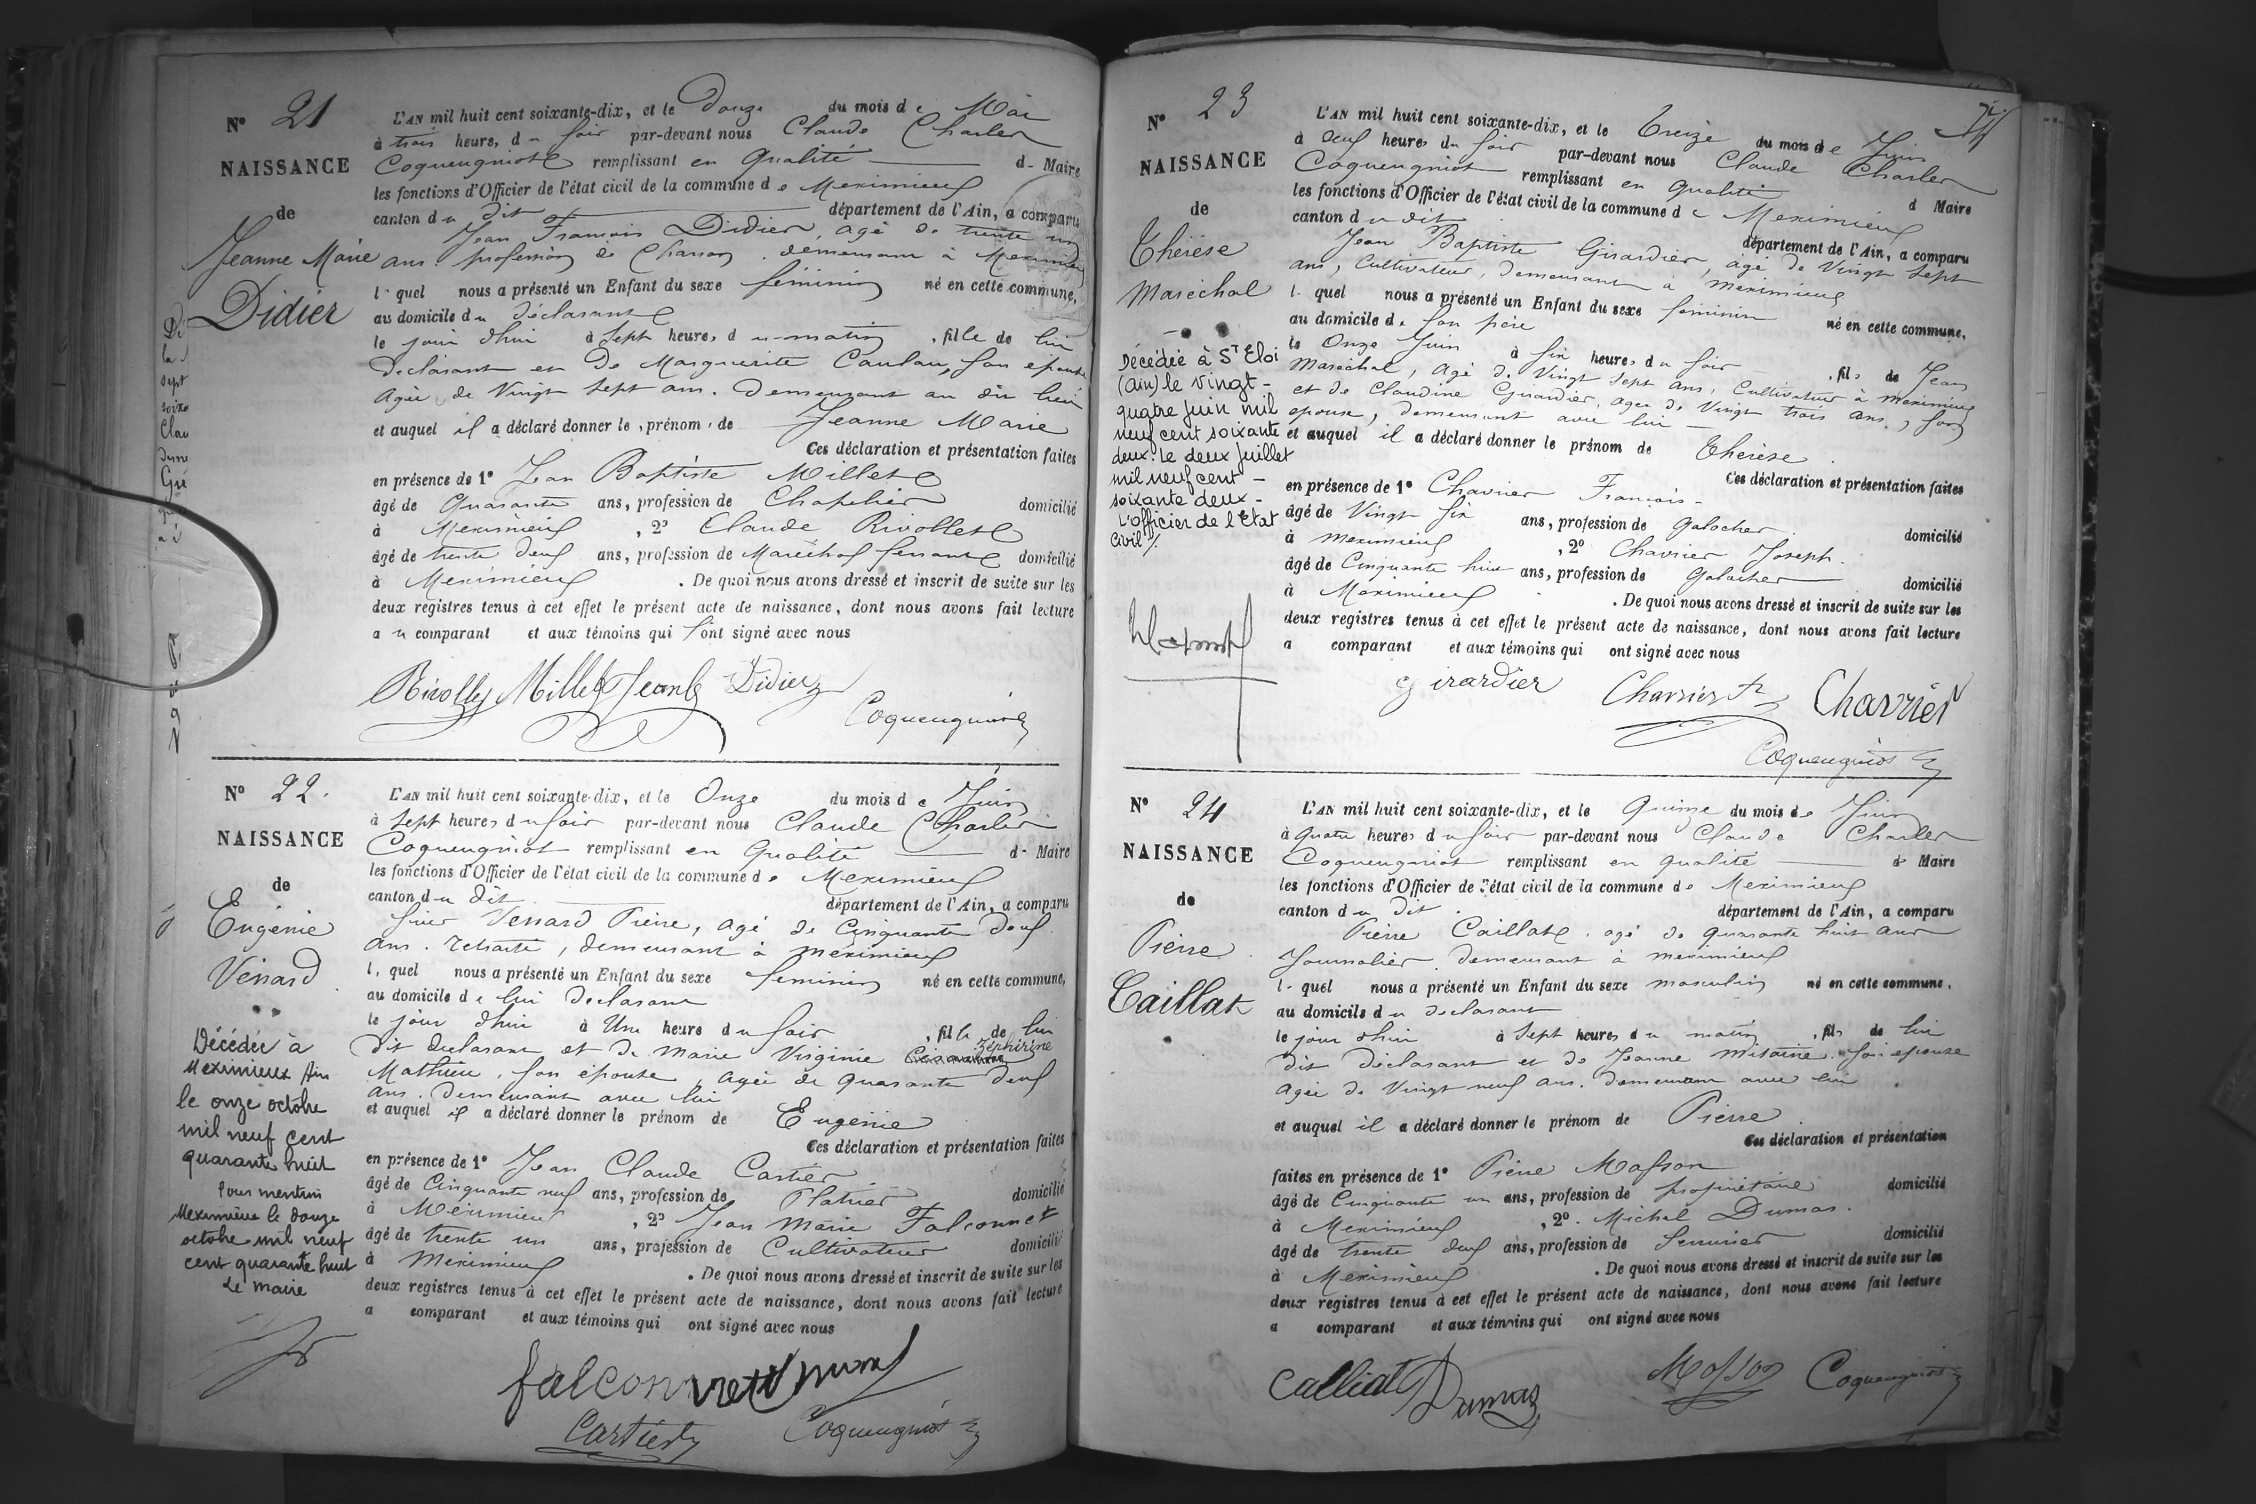 N° 21
NAISSANCE
de
Jeanne Marie
Didier
L'AN mil huit cent soixante-dix, et le Douze du mois de Mai
à trois heures, du soir par-devant nous Claude Charles
Coqueugniot remplissant en qualité d- Maire
les fonctions d'Officier de l'état civil de la commune de Meximieux
canton du dit département de l'Ain, a comparu
Jean François Didier, agé de trente un
ans. profession de Charron. demeurant à Meximieux
lequel nous a présenté un Enfant du sexe féminin né en cette commune,
au domicile du déclarant
le jour d'hui à sept heures du matin, fille de lui
déclarant et De Marguerite son epouse
agée de Vingt sept ans. Demeurant au dit lieu
et auquel il a déclaré donner les prénoms de Jeanne Marie
Ces déclaration et présentation faites
en présence de 1° Jean Baptiste Millet
âgé de Quarante ans, profession de Chapelier domicilié
à Meximieux, 2° Claude Rivollet
âgé de trente deux ans, profession de Maréchal ferrant domicilié
à Meximieux. De quoi nous avons dressé et inscrit de suite sur les
deux registres tenus à cet effet le présent acte de naissance, dont nous avons fait lecture
au comparant et aux témoins qui ont signé avec nous
Rivollet Millet Jean Didier
Coqueugniot
N° 22.
NAISSANCE
de
Eugénie
Venard
Décédée à
Meximieux Ain
le onze octobre
mil neuf cent
quarante huit
Pour mention
Meximieux le douze
octobre mil neuf
cent quarante huit
Le maire
L'AN mil huit cent soixante-dix, et le Onze du mois de Juin
à sept heures du soir par-devant nous Claude Charles
Coqueugniot remplissant en Qualité d- Maire
les fonctions d'Officier de l'état civil de la commune de Meximieux
canton du dit département de l'Ain, a comparu
sieur Venard Pierre, agé de Cinquante deux
ans. retraité, demeurant à meximieux
lequel nous a présenté un Enfant du sexe feminin né en cette commune,
au domicile de lui declarant
le jour d'hui à Une heure du soir, fille de lui
dit declarant et de Marie Virginie Zéphirine
Mathieu, son épouse, agée de quarante deux
ans. demeurant avec lui
et auquel il a déclaré donner le prénom de Eugénie
Ces déclaration et présentation faites
en présence de 1° Jean Claude Cartier
âgé de Cinquante neuf ans, profession de Platrier domicilié
à Meximieux, 2° Jean Marie Falconnet
âgé de trente un ans, profession de Cultivateur domicilié
à Meximieux. De quoi nous avons dressé et inscrit de suite sur les
deux registres tenus à cet effet le présent acte de naissance, dont nous avons fait lecture
a comparant et aux témoins qui ont signé avec nous
falconnet Venard
Cartier Coqueugniot
N° 23
NAISSANCE
de
Thérèse
Maréchal
Décédée à St Eloi
(Ain) le vingt-
quatre juin mil
neuf cent soixante
deux. Le deux juillet
mil neuf cent -
soixante deux -
L'officier de l'Etat
civil
L'AN mil huit cent soixante-dix, et le treize du mois de Juin
à deux heures du soir par-devant nous Claude Charles
Coqueugniot remplissant en qualité d Maire
les fonctions d'Officier de l'état civil de la commune de Meximieux
canton du dit département de l'Ain, a comparu
Jean Baptiste Girardier, agé de Vingt sept
ans, Cultivateur, demeurant à meximieux
lequel nous a présenté un Enfant du sexe féminin né en cette commune,
au domicile de son père
le Onze Juin à six heures du soir, fils de Jean
Maréchal, agé de Vingt sept ans, Cultivateur à meximieux
et de Claudine Girardier, agée de Vingt trois ans, son
epouse, demeurant avec lui
et auquel il a déclaré donner le prénom de Thérèse
Ces déclaration et présentation faites
en présence de 1° Chavrier François
âgé de Vingt six ans, profession de Galocher domicilié
à meximieux, 2° Chavrier Joseph.
âgé de Cinquante huit ans, profession de Galocher domicilié
à Meximieux. De quoi nous avons dressé et inscrit de suite sur les
deux registres tenus à cet effet le présent acte de naissance, dont nous avons fait lecture
a comparant et aux témoins qui ont signé avec nous
girardier Chavrier fr Chavrier
Coqueugniot
N° 24
NAISSANCE
de
Pierre
Caillat
L'AN mil huit cent soixante-dix, et le Quinze du mois de Juin
à quatre heures du soir par-devant nous Claude Charles
Coqueugniot remplissant en qualité de Maire
les fonctions d'Officier de l'état civil de la commune de Meximieux
canton du dit. département de l'Ain, a comparu
Pierre Caillat. agé de quarante huit ans
Journalier. demeurant à meximieux
lequel nous a présenté un Enfant du sexe masculin né en cette commune,
au domicile du declarant
le jour d'hui à sept heures du matin, fils de lui
dit déclarant et de Jeanne son epouse
agée de Vingt neuf ans. demeurant avec lui
et auquel il a déclaré donner le prénom de Pierre
Ces déclaration et présentation
faites en présence de 1° Pierre Masson
âgé de Cinquante un ans, profession de propriétaire domicilié
à Meximieux, 2° Michel Dumas.
âgé de trente deux ans, profession de Serrurier domicilié
à Meximieux. De quoi nous avons dressé et inscrit de suite sur les
deux registres tenus à cet effet le présent acte de naissance, dont nous avons fait lecture
a comparant et aux témoins qui ont signé avec nous
Calliat Dumas Masson Coqueugniot